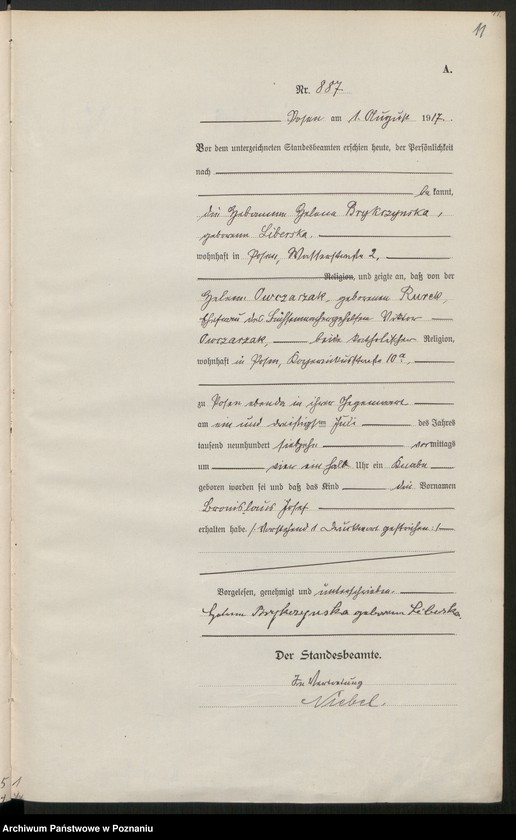 11
A.
Nr. 887
Posen am 1. August 1917.
Vor dem unterzeichneten Standesbeamten erschien heute, der Persönlichkeit
nach
bekannt,
die Hebamme Helena Brykczynska,
geborene Liberska.
wohnhaft in Posen, Wallstraße 2,
Religion, und zeigte an, daß von der
Helene Owczarzak, geborenen Kurek,
Ehefrau des Büchsenmachergehilfen Viktor
Owczarzak, beide katholischer Religion,
wohnhaft in Posen, 10a,
zu Posen ebenda in ihrer Gegenwart
am ein und dreißigsten Juli des Jahres
tausend neunhundert siebzehn vormittags
um vier ein halb Uhr ein Knabe
geboren worden sei und daß das Kind die Vornamen
Bronislaus Josef
erhalten habe. /: Vorstehend 1 Druckwort gestrichen :/
Vorgelesen, genehmigt und unterschrieben.
Helene Brykczynska geborene Liberska.
Der Standesbeamte.
In Vertretung
Niebel.
5 1
Archiwum Państwowe w Poznaniu